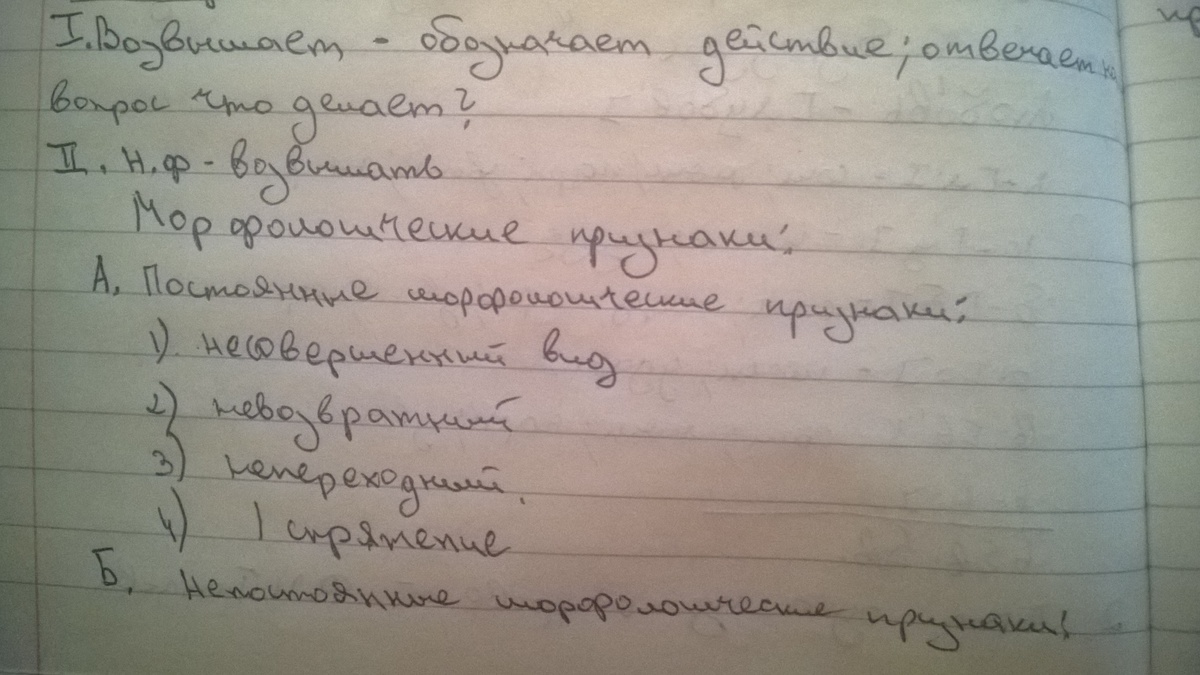 I. Возвышает - обозначает действие; отвечает на
вопрос что делает?
II. Н.ф - возвышать
Морфологические признаки:
А. Постоянные морфологические признаки:
1) несовершенный вид
2) невозвратный
3) непереходный.
4) 1 спряжение
Б. Непостоянные морфологические признаки: